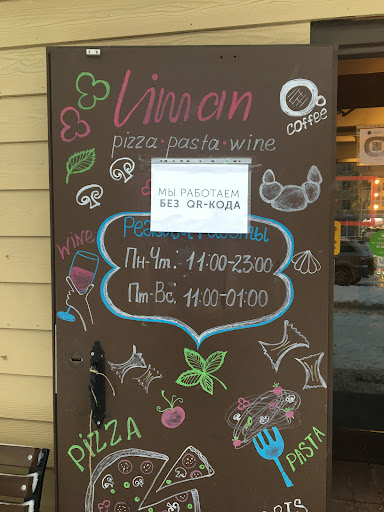 Liman
pizza · pasta · wine
coffee
МЫ РАБОТАЕМ
БЕЗ QR-КОДА
WINE
Режим работы
Пн-Чт.: 11:00-23:00
Пт-Вс. 11:00-01:00
PIZZA
PASTA